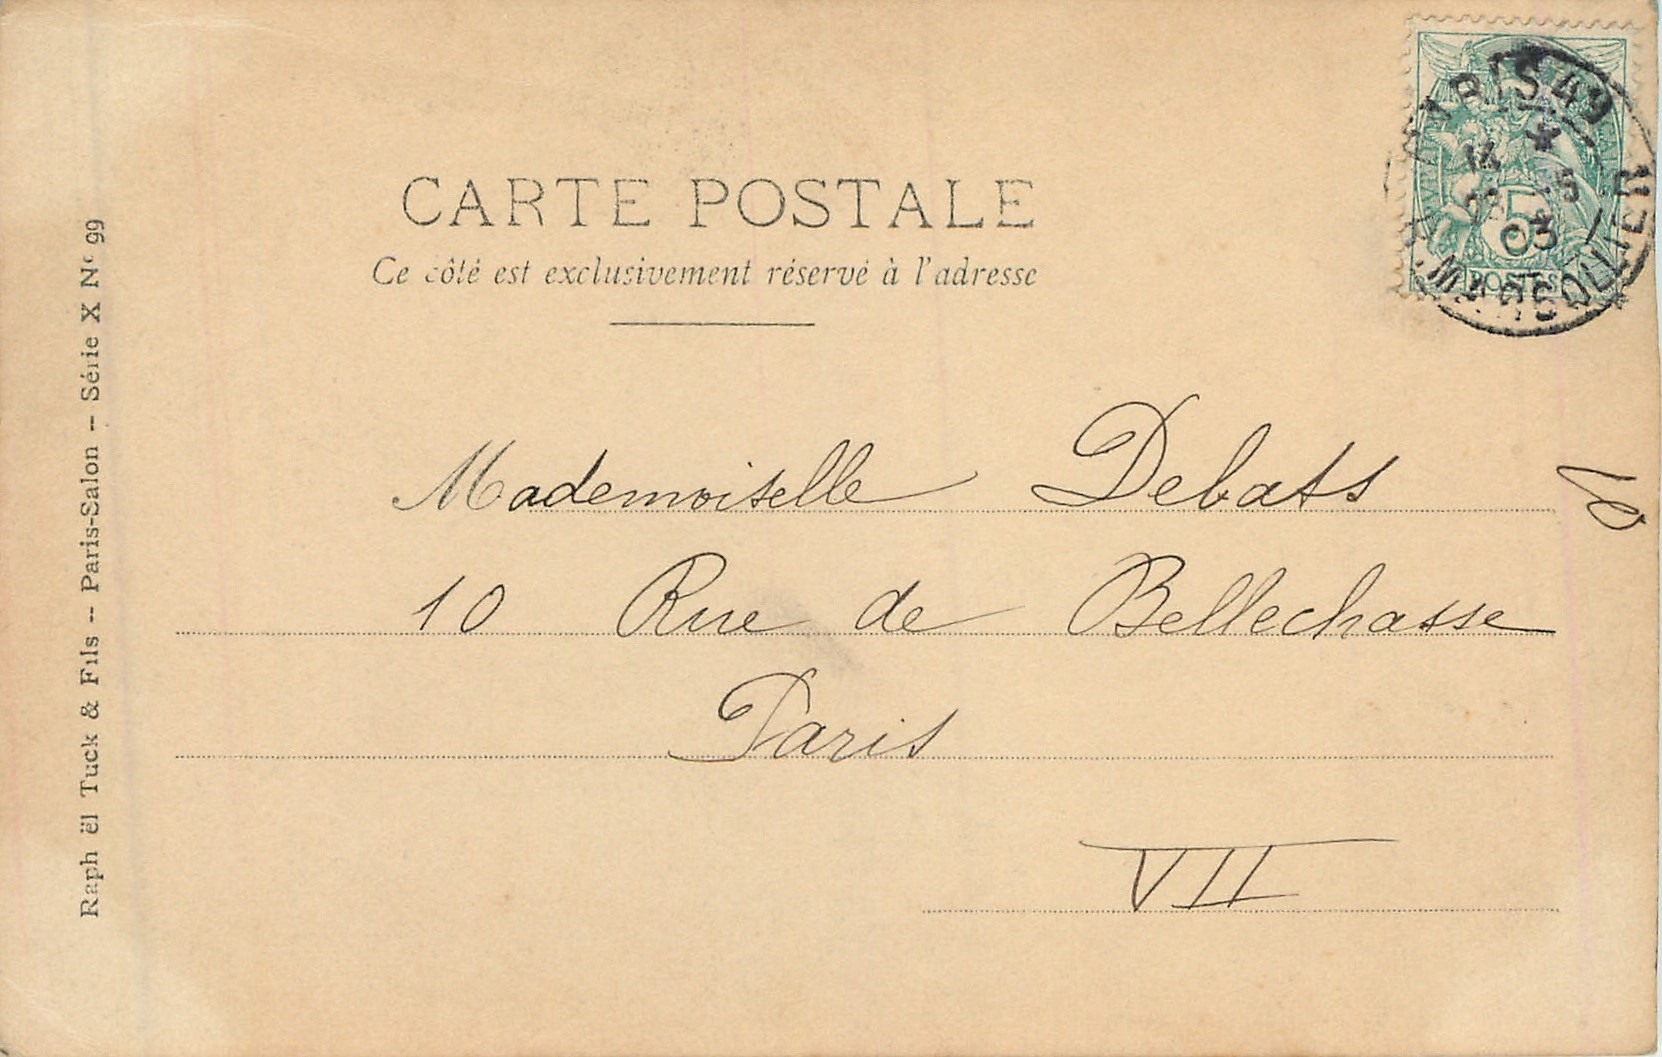 CARTE POSTALE
Ce côté est exclusivement réservé à l'adresse
Mademoiselle Debats
10 Rue de Bellechasse
Paris
VII
Raph ël Tuck & Fils -- Paris-Salon -- Série X Nº 99
PARIS 49
03
5
POSTES